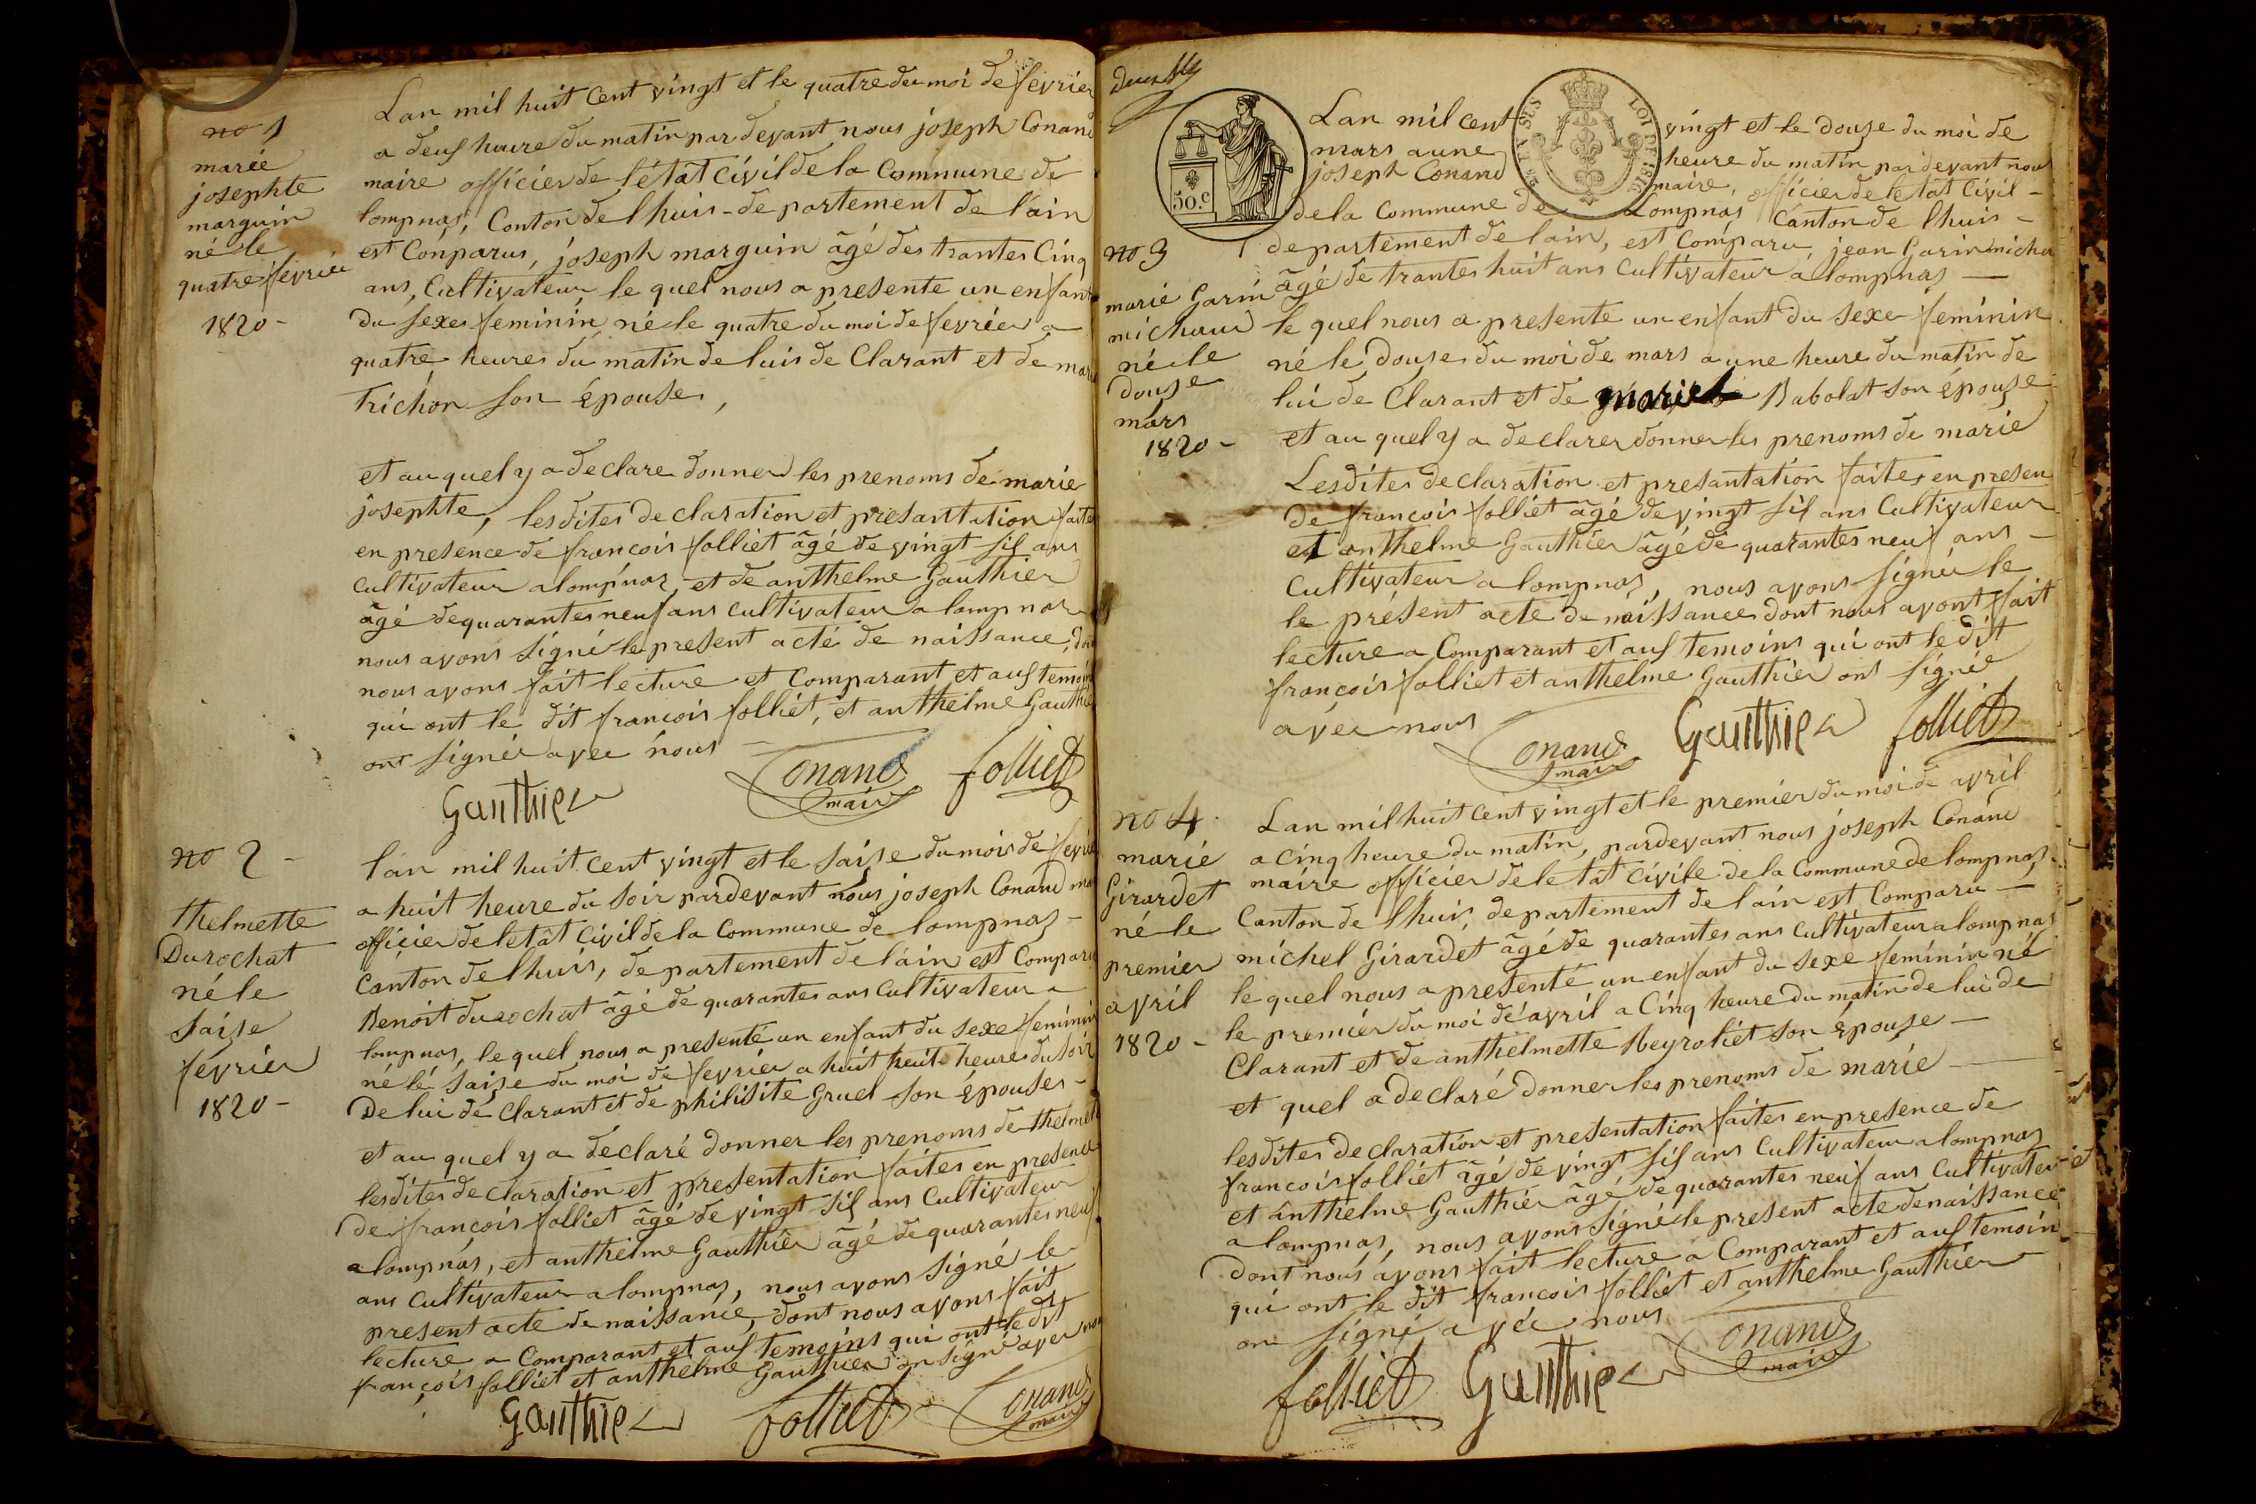 no 1
marie
josephte
marguin
né le
quatre fevrier
1820 -
Lan mil huit cent vingt et le quatre du moi de fevrier
a deuf heure du matin par devant nous joseph Conand
maire officier de létat civil de la Commune de
lompnas, Conton de lhuis - de partement de lain
est Conparus, joseph marguin âgé des trantes Cinq
ans, Cultivateur le quel nous a presente un enfant
du sexes feminin né le quatre du moi de fevrier a
quatre heures du matin de luis de Clarant et de marie
Trichon son Épouses,
et au quel y a declare donner les prenoms de marie
josephte, lesdites declaration et presantation faites
en presence de francois folliet âgé de vingt sif ans
cultivateur a lompnas, et de anthelme Gauthier
âgé de quarantes neuf ans cultivateur a lompnas
nous avons signé le present acté de naissance, dont
nous avons fait lecture et Comparant et auf temoins
qui ont le dit francois folliét, et anthelme Gauthier
ont signér avec nous
Gauthier Conand maire folliet
no 2 -
thelmette
Durochat
né le
saize
février
1820 -
lan mil huit cent vingt et le saize du mois de fevrier
a huit heure du soir pardevant nous joseph Conand maire
officier de letat civil de la Commune de lompnas -
Canton de lhuis, de partement de lain est Comparu
Benoit durochat âgé de quarantes ans cultivateur a
lompnas, le quel nous a presenté un enfant du sexe feminin
né lé saize du moi de fevrier a huit heure du soir
De lui de clarant et de philisite Gruel son Épouses -
et au quel y a déclaré donner les prenoms de thelmette
lesdites declaration et presentation faites en presence
de francois folliet âgé de vingt sif ans Cultivateur
a lompnas, et anthelme Gauthier âgé de quarantes neuf
ans cultivateur a lompnas, nous avons signé le
present acte de naissance, dont nous avons fait
lecture a Comparant et auf temoins qui ont le dit
françois folliet et anthelme Gauthier on signé avec nous
Gauthier folliet Conand maire
50. c
LOI DU 1816
no 3
marie Garin
michaud
né le
douze
mars
1820 -
Lan mil cent vingt et le douze du moi de
mars a une heure du matin par devant nous
joseph Conand maire, officier de letat Civil -
de la Commune de Lompnas Canton de lhuis -
departement de lain, est Comparu, jean Garin michau
âgé de trantes huit ans Cultivateur a lompnas —
le quel nous a presente un enfant du sexe feminin
né le douze du moi de mars a une heure du matin de
lui de Clarant et de mariet Babolat son épouse
et au quel y a declarer donner les prenoms de marie
Lesdites declaration et presantation faites en presen
de francois folliet âgé de vingt sif ans Cultivateur
et anthelme Gauthier âgé de quarantes neuf ans -
Cultivateur a lompnas, nous avons signér le
le présent acte de naissance dont nous avont fait
lecture a Comparant et auf temoins qui ont le dit
francois folliet et anthelme Gauthier ont signée
avec nous
Conand maire Gauthier folliet
no 4.
marie
Girardet
né le
premier
avril
1820 -
Lan mil huit cent vingt et le premier du moi de avril
a cinq heure du matin, pardevant nous joseph Conand
maire officier de letat civile de la Commune de lompnas
Canton de lhuis, departement de lain est Comparu —
michel Girardet âgé de quarantes ans cultivateur a lompnas
le quel nous a presenté un enfant du sexe feminin né
le premier du moi de avril a Cinq heure du matin de lui de
Clarant et de anthelmette Reyroliet son épouse —
et quel a declaré donner les prenoms de marie —
lesdites declaration et presentation faites en presence de
francois folliet âgé de vingt sif ans Cultivateur a lompnas
et anthelme Gauthier âgé de quarantes neuf ans Cultivateur
a lompnas, nous avons signé le present acte de naissance
dont nous avons fait lecture a Comparant et auf temoin
qui ont le dit francois folliet et anthelme Gauthier
on signé avéc nous
folliet Gauthier Conand maire